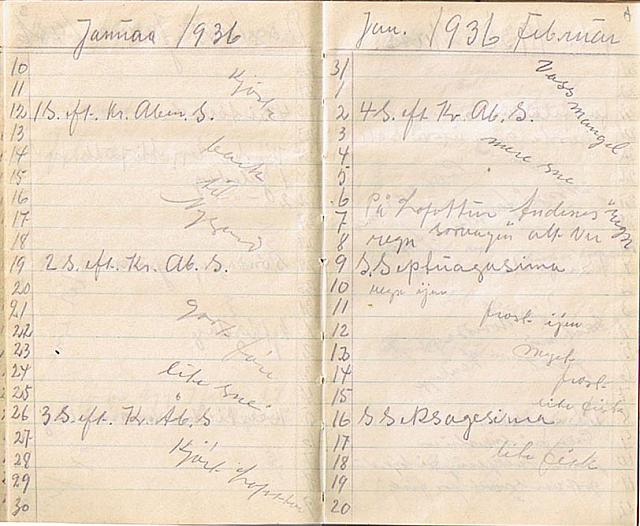 Januaa 1936
10
11 Kjört
12 1 S. eft. Kr. Aben. S.
13
14
15 til
16
17
18
19 2 S. eft. Kr. Ab. S.
20
21 Gort före
22
23
24 lite sne
25
26 3 S. eft. Kr. Ab. S
27
28 Kjört
29
30
Jan. 1936 Februar
31 Vass mangel
1
2 4 S. eft Kr. Ab. S.
3
4 mere sne
5
6
7 På Lofottur Andenes regn
8 regn alt
9 S Septuagusima
10 regn ijen
11 frost ijen
12
13 myet
14 frost
15 lite fisk
16 S Seksagesima
17
18 lite fisk
19
20